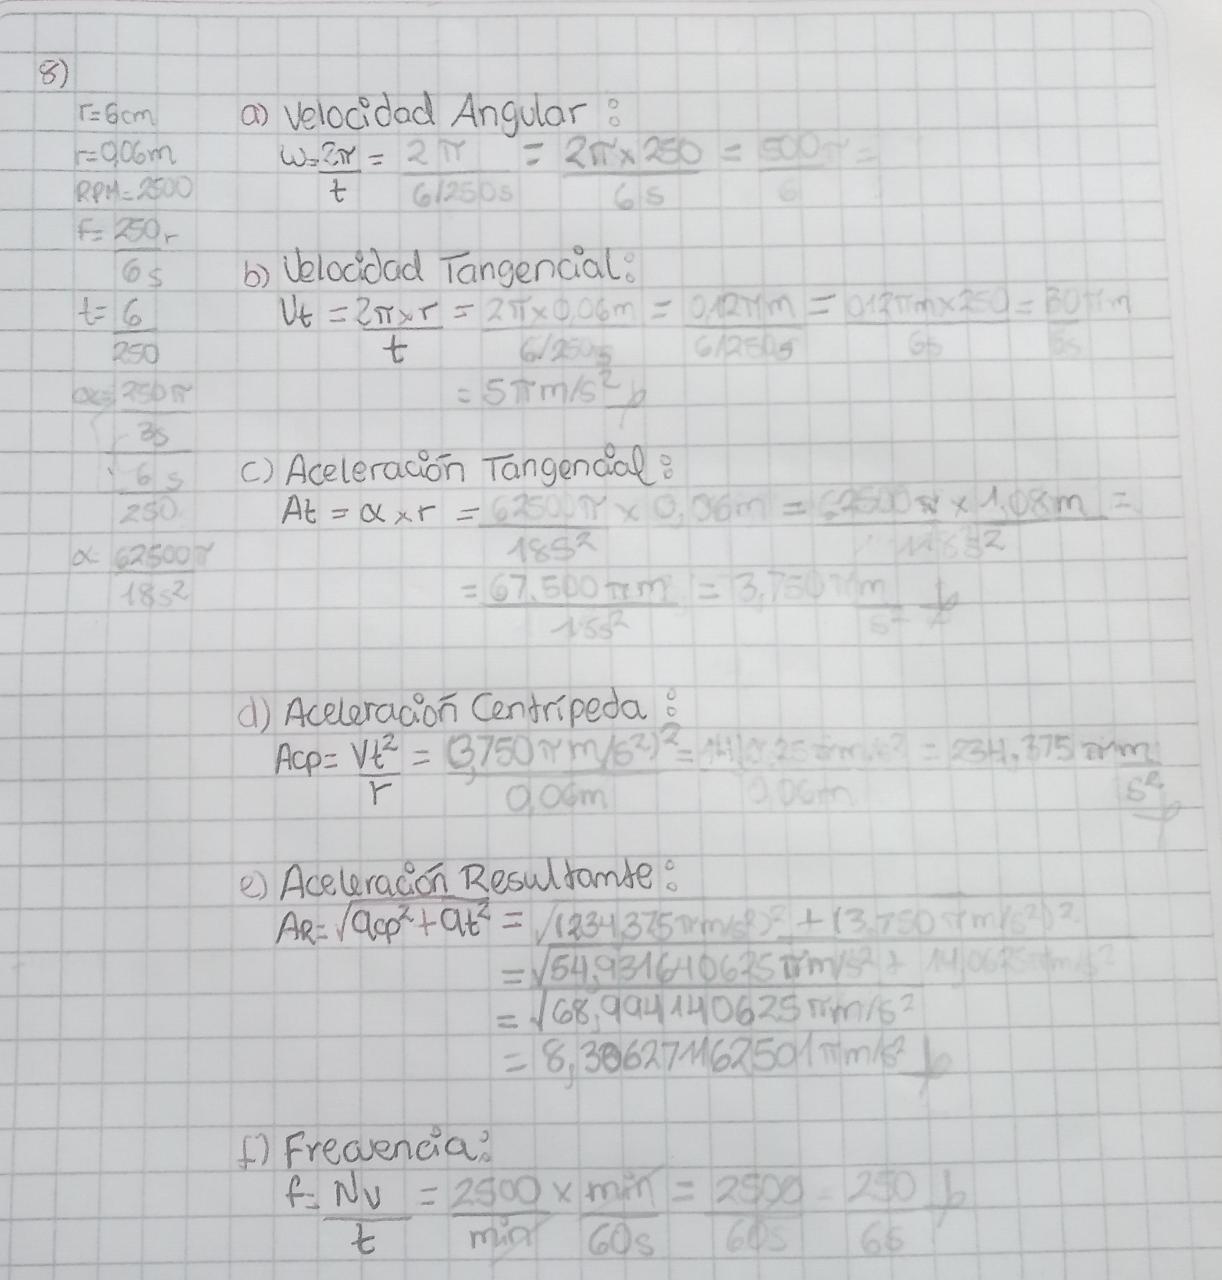 8)
r=6cm
r=0,06m
RPM=2500
f=250r
6s
t=6
250
α=250π
3s
6s
250
α=62500π
18s²
a) Velocidad Angular:
ω=2π/t = 2π/6/250s = 2π×250/6s = 500π/6 =
b) Velocidad Tangencial:
Vt = 2π×r/t = 2π×0,06m/6/250s = 0,12πm/6/250s = 0,12πm×250/6s = 30πm/6s
= 5πm/s²
c) Aceleración Tangencial:
At = α×r = 62500π/18s² × 0,06m = 62500π × 1,08m/18s² =
= 67.500πm/18s² = 3,750πm/s²
d) Aceleración Centrípeda:
Acp= Vt²/r = (3,750πm/s²)²/0,06m = /0,06m = 234,375πm/s²
e) Aceleración Resultante:
AR=√acp²+at² = √(234,375πm/s²)² + (3,750πm/s²)²
= √54,931640625πm/s² + 14,0625πm/s²
= √68,994140625πm/s²
= 8,306271162501πm/s²
f) Frecuencia:
f= Nv/t = 2500/min × min/60s = 2500/60s = 250/6s